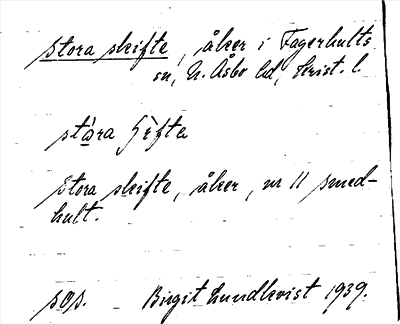 stora skifte, åker i Fagerhults
sn, N. Åsbo hd, Krist. l.
stòra ʃìfta
Stora skifte, åker, nr 11 Smed-
hult.
sqs. Birgit Lundkvist 1939.